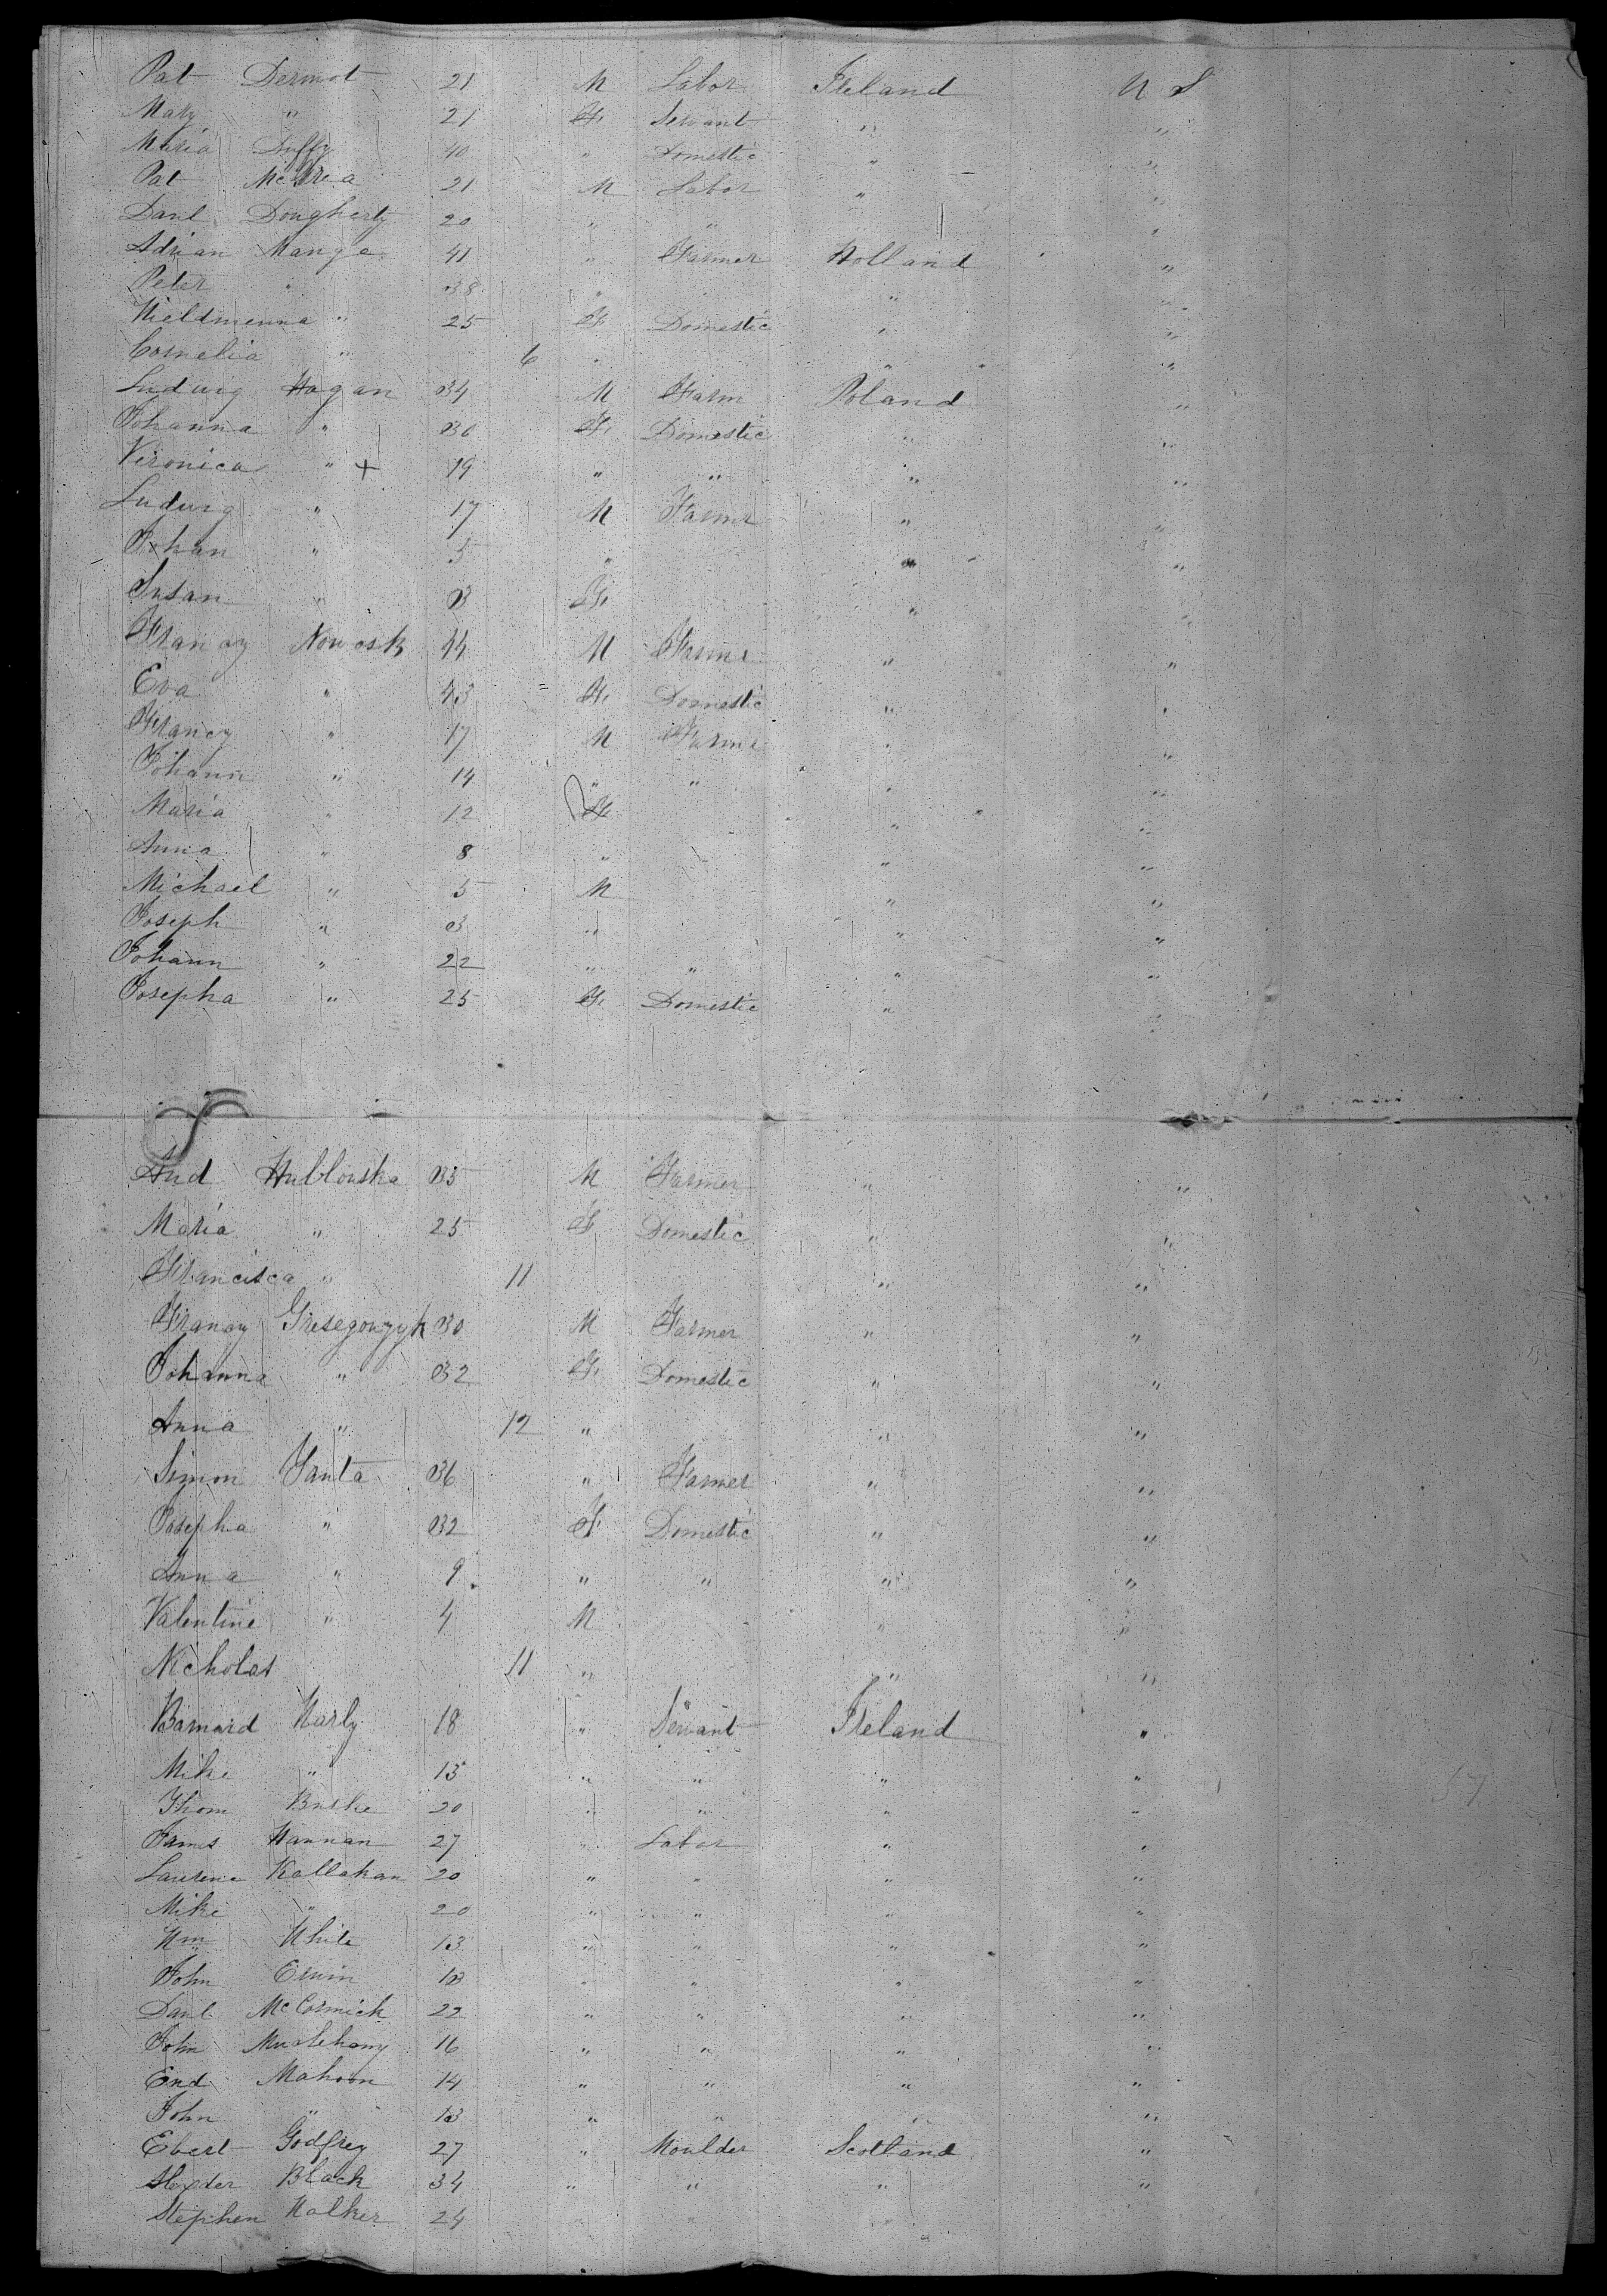 Pat Dermot 21 M Labor Ireland U S
Mary " 21 F. Servant " "
Maria Duffy 40 " Domestic " "
Pat McCrea 21 M Labor " "
Danl Dougherty 20 " " "
Adrian Mange 41 " Farmer Holland "
Peter " 38 " " " "
Hieldmenna " 25 F. Domestic " "
Cornelia " 6 " " "
Ludwig Hagan 34 M Farm Poland "
Johanna " 36 F. Domestic " "
Veronica " + 19 " " " "
Ludwig " 17 M Farmr " "
Johan " 5 " " "
Susan " 3 F. " "
Francz Nowosk 44 M Farmr " "
Eva " 43 F. Domestic " "
Francz " 17 M Farmr " "
Johann " 14 " " " "
Maria " 12 F. " "
Anna " 8 " " "
Michael " 5 M " "
Joseph " 3 " " "
Johann " 22 " " " "
Josepha " 25 F. Domestic " "
And Hublouska 35 M Farmer " "
Maria " 25 F Domestic " "
Francisca " 11 " "
Francz Gresegowzyk 30 M Farmer " "
Johanna " 32 F. Domestic " "
Anna " 12 " " "
Simon Janta 36 " Farmer " "
Josepha " 32 F. Domestic " "
Anna " 9 " " " "
Valentine " 4 M " "
Nicholas 11 " " "
Barnard Harly 18 " Servant Ireland "
Mike " 15 " " " "
Thom Burke 20 " " " "
James Hannan 27 " Labor " "
Laurence Kallahan 20 " " " "
Mike " 20 " " " "
Wm White 13 " " " "
John Erwin 13 " " " "
Danl McCormick 22 " " " "
John 16 " " " "
End Mahoon 14 " " " "
John " 13 " " " "
Ebert Godfrey 27 " Moulder Scotland "
Alexder Black 34 " " " "
Stephen Walker 24
57